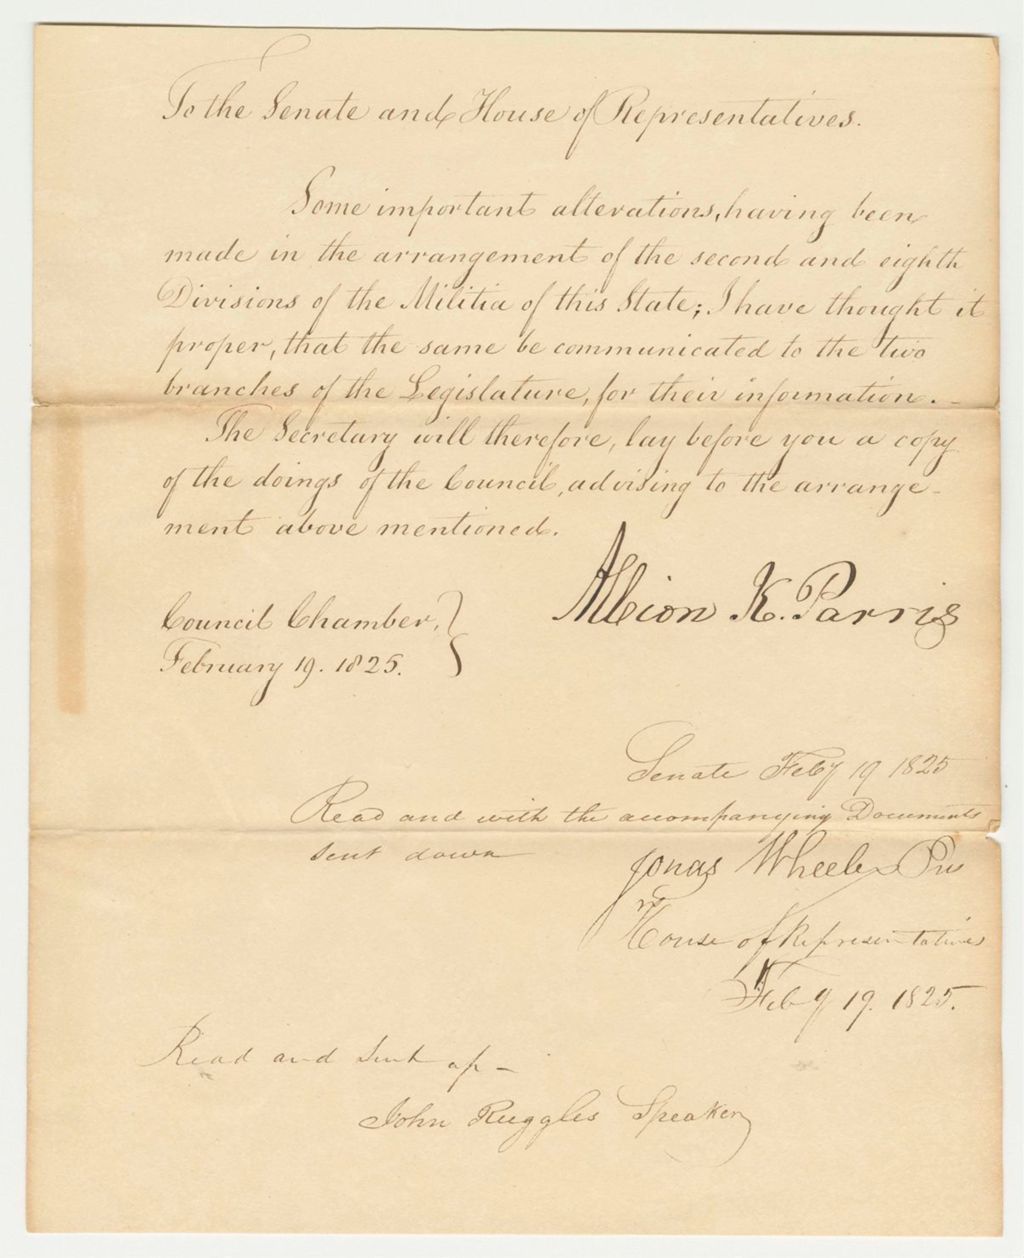 To the Senate and House of Representatives.
Some important alterations, having been
made in the arrangement of the second and eighth
Divisions of the Militia of this State; I have thought it
proper, that the same be communicated to the two
branches of the Legislature, for their information. -
The Secretary will therefore, lay before you a copy
of the doings of the Council, advising to the arrange-
ment above mentioned.
Albion K. Parris
Council Chamber,
February 19. 1825.
Senate Feby 19 1825
Read and with the accompanying Documents
sent down
Jonas Wheeler Pres
House of Representatives
Feby 19. 1825.
Read and sent up -
John Ruggles Speaker